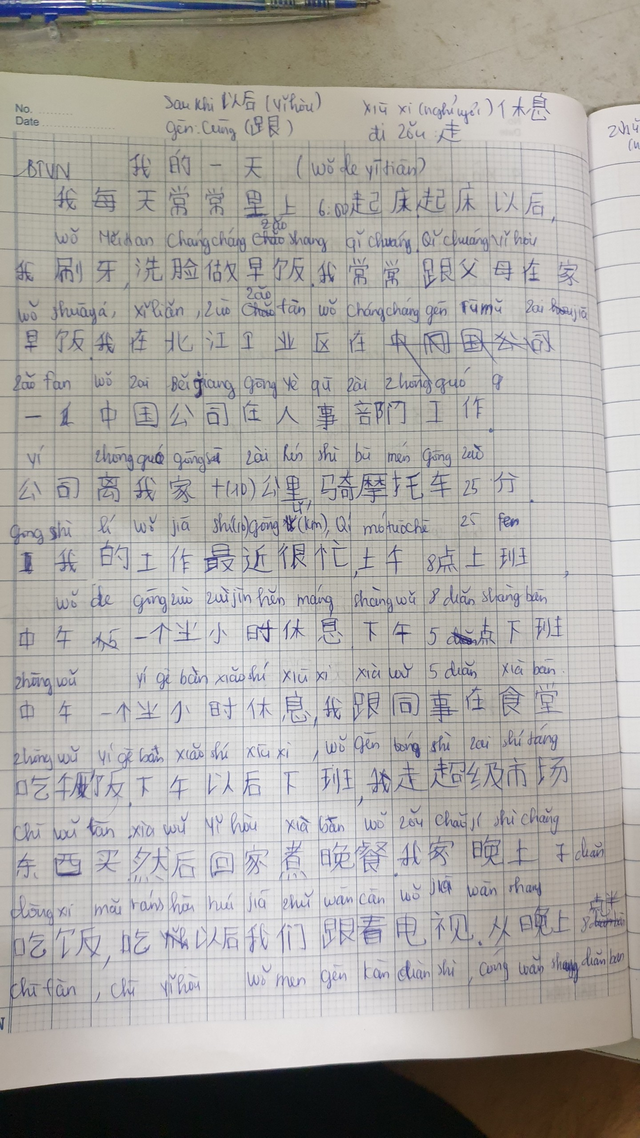 No.
Date
Sau khi 以后 (yǐhòu)
xiū xi (nghỉ ngơi) 休息
gēn: Cùng (跟)
đi zǒu 走
BTVN 我 的 一 天 (wǒ de yītiān)
我 每 天 常 常 里 上 6:00起 床,起 床 以后,
wǒ Měitian chángcháng zǎo shang qǐ chuáng, Qǐ chuáng yǐ hòu
我 刷 牙, 洗 脸 做 早 饭. 我 常 常 跟 父 母 在 家
wǒ shuāyá, xǐliǎn, zuò zǎo fàn wǒ chángcháng gēn fùmǔ zai jiā
早 饭. 我 在 北 江 工 业 区 在
zǎo fan wǒ zai Běijiang gōng yè qū zài zhōng guó g
一 中 国 公 司 在 人 事 部 门 工 作.
yí zhōng guó gōngsī zài rén shì bù mén gōng zuò
公 司 离 我 家 十(10) 公 里, 骑 摩 托 车 25 分.
gōng shi lí wǒ jiā shí(10) gōng lǐ (km), Qí mótuōchē 25 fen
我 的 工 作 最 近 很 忙, 上 午 8点 上 班,
wǒ de gōngzuò zuìjìn hěn máng shàng wǔ 8 diǎn shàng bān
中 午 一个 半 小 时 休 息. 下 午 5 点 下 班
zhōng wǔ yí gè bàn xiǎoshí xiū xi xià wǔ 5 diǎn xià bān.
中 午 一个 半 小 时 休 息, 我 跟 同 事 在 食 堂
zhōng wǔ yí gè bàn xiǎo shí xiū xi, wǒ gēn tóng shì zai shí táng
吃 午 饭. 下 午 以 后 下 班, 我 走 超 级 市 场
chī wǔ fàn xia wǔ yǐ hòu xià bān wǒ zǒu chāojí shì chǎng
东 西 买 然 后 回 家 煮 晚 餐. 我 家 晚 上 7 diǎn
dōng xi mǎi ránshòu huí jiā zhǔ wǎn cān wǒ jiā wǎn shang
吃 饭, 吃 以后 我 们 跟 看 电 视. 从 晚 上 8 点半
chī fàn, chī yǐhòu wǒ men gēn kàn diàn shì, cóng wǎn shang diǎn bàn